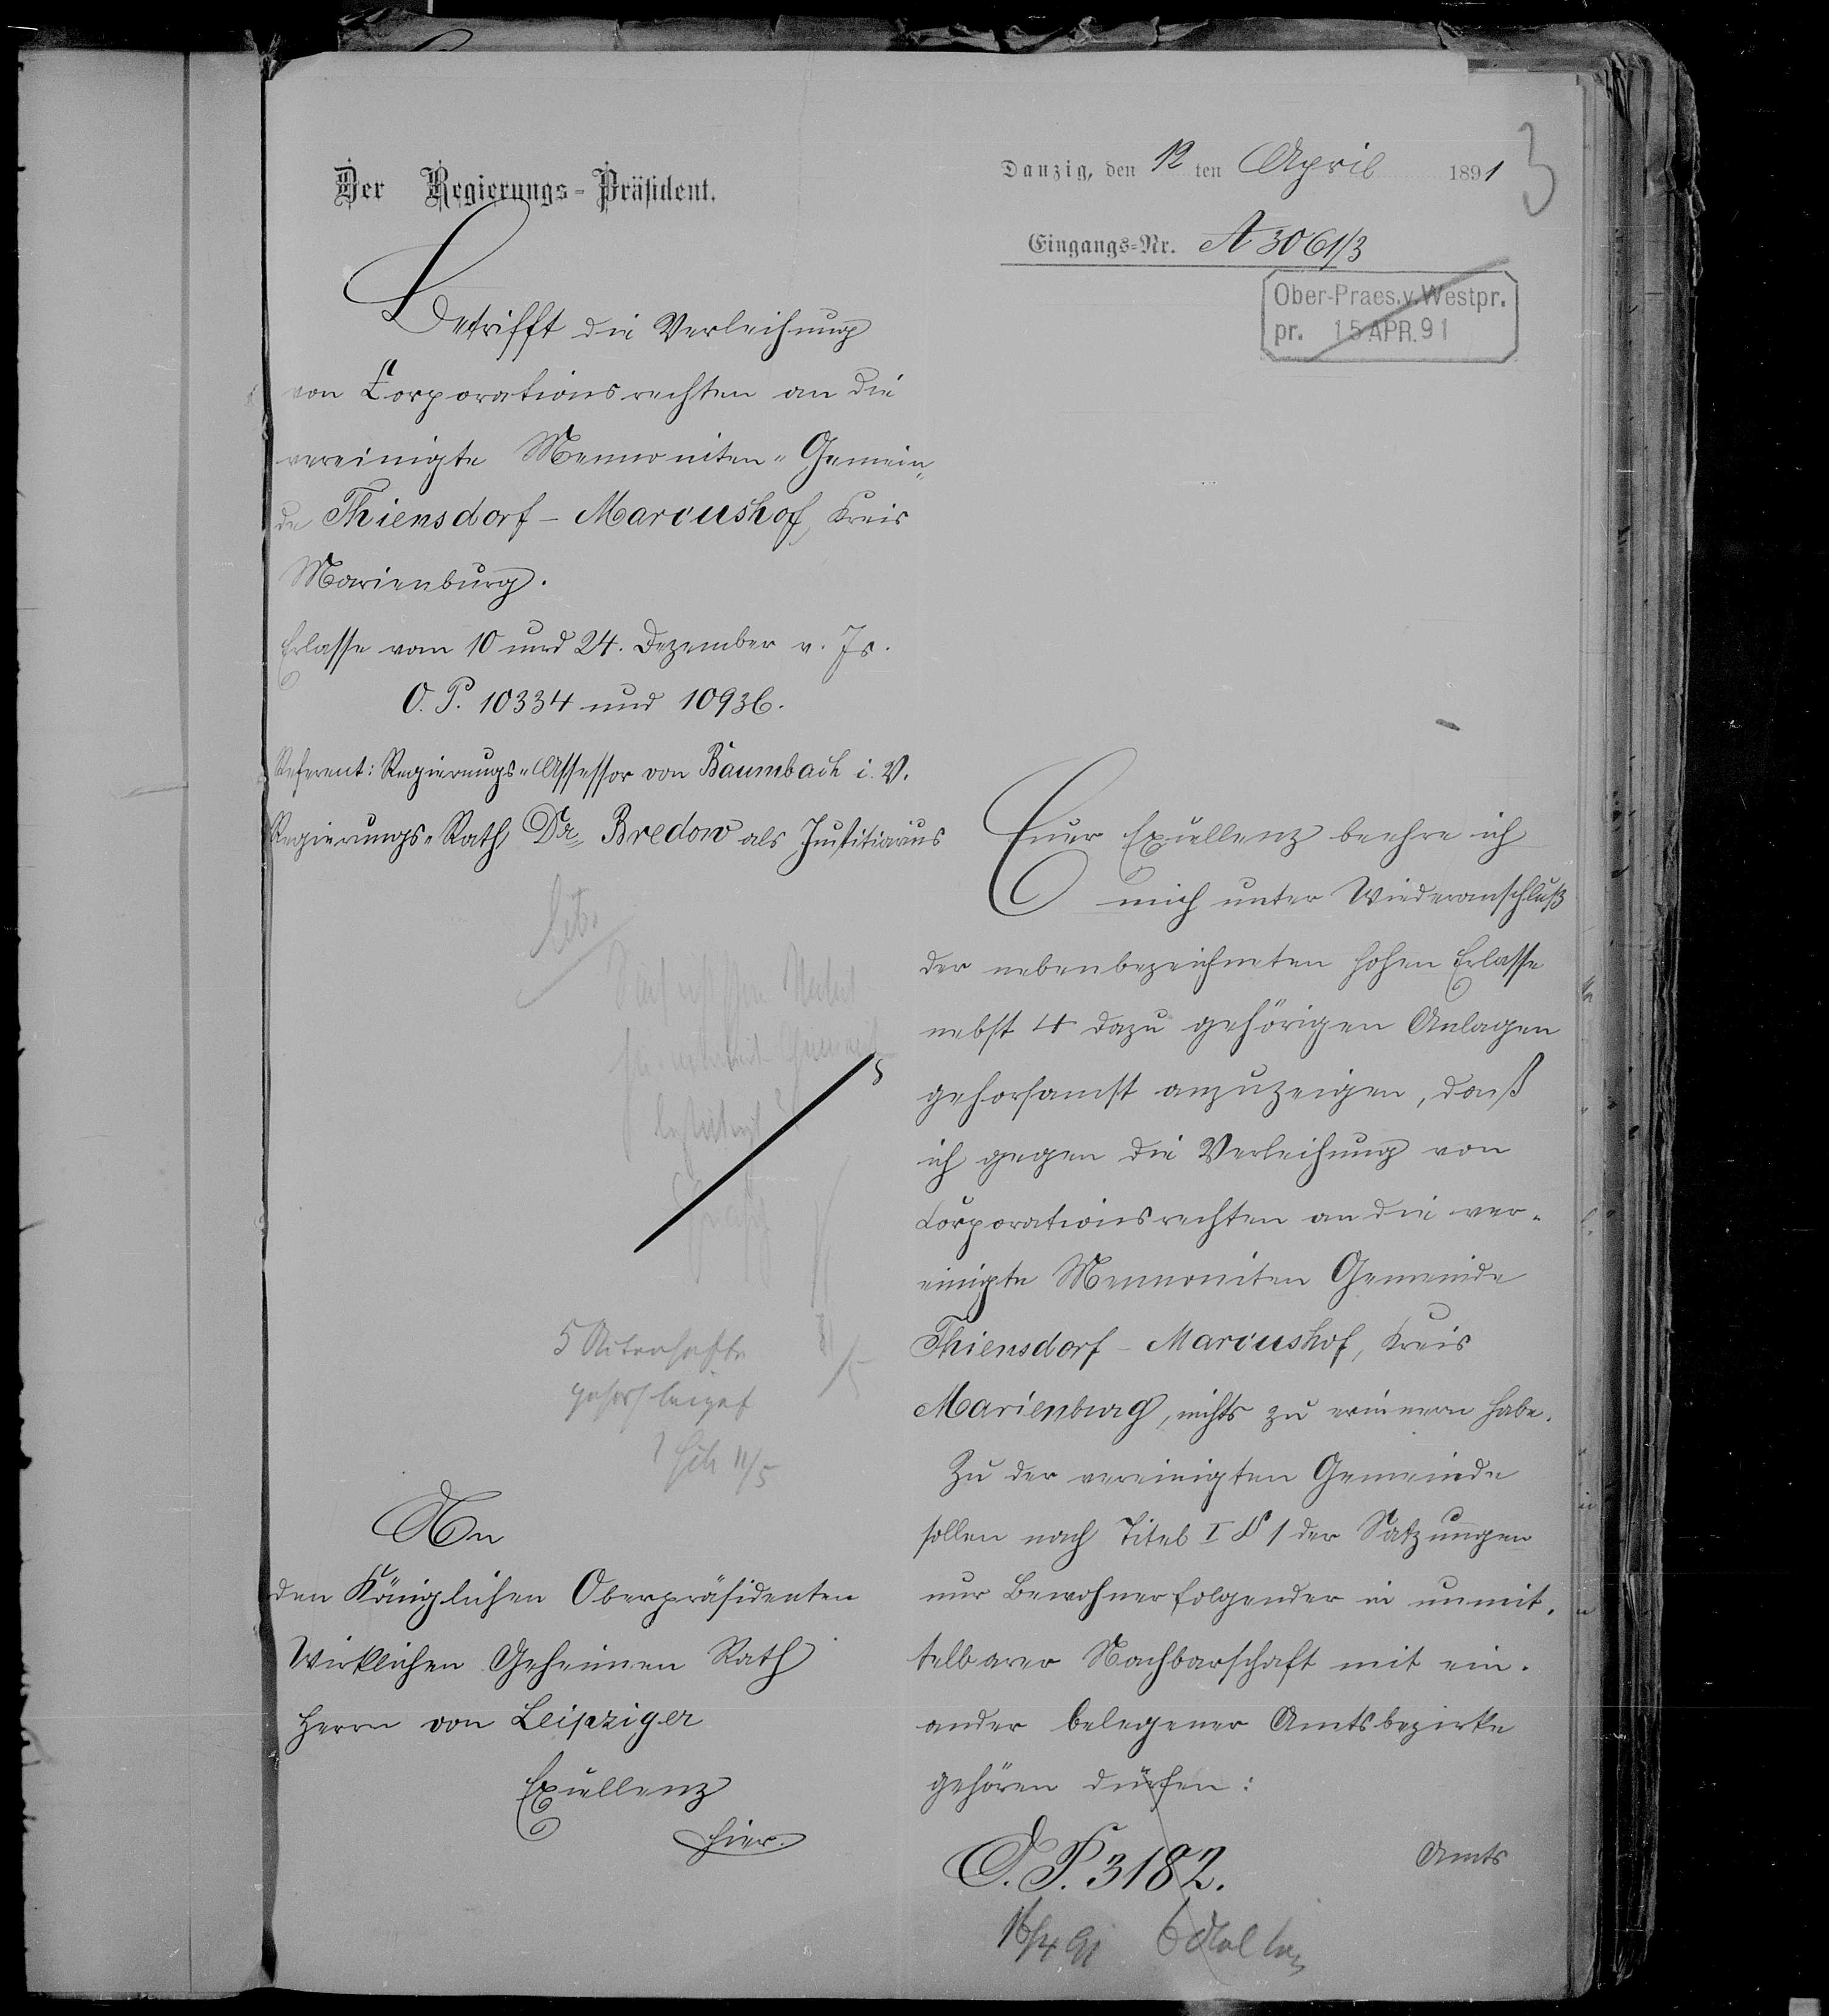 Der Regierungs-Präsident.
Danzig, den 12 ten April 1891
3
Eingangs-Nr. A 3061/3
Ober-Praes.v.Westpr.
pr. 15 APR. 91
Betrifft die Verleihung
von Corporationsrechten an die
vereinigte Mennoniten-Gemein-
de Thiensdorf - Marcushof, Kreis
Marienburg.
Erlasse vom 10 und 24. Dezember v. Js.
O. P. 10334 und 10936.
Referent: Regierungs-Assessor von Baumbach i. V.
Regierungs-Rath Dr. Bredow als Justitiarius
5 Actenhefte
11/5
An
den Königlichen Oberpräsidenten
Wirklichen Geheimen Rath
Herrn von Leipziger
Excellenz
hier.
Euer Excellenz beehre ich
mich unter Wiederanschluß
der nebenbezeichneten hohen Erlasse
nebst 4 dazu gehörigen Anlagen
gehorsamst anzuzeigen, daß
ich gegen die Verleihung von
Corporationsrechten an die ver-
einigte Mennoniten Gemeinde
Thiensdorf - Marcushof, Kreis
Marienburg, nichts zu erinnern habe.
Zu der vereinigten Gemeinde
sollen nach Titel I § 1 der Satzungen
nur Bewohner folgender in unmit-
telbarer Nachbarschaft mit ein-
ander belegener Amtsbezirke
gehören dürfen:
Amts
O. P. 3182.
16/4 91